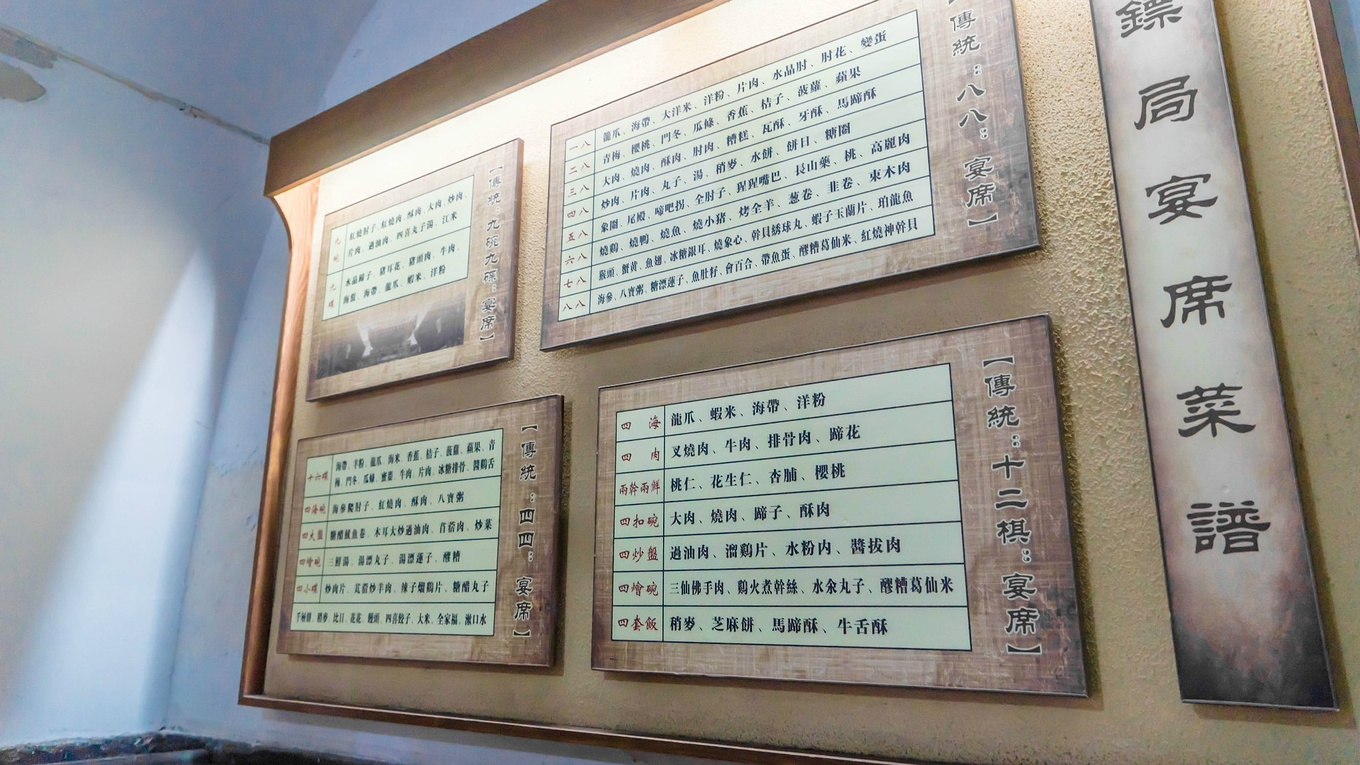 鏢局宴席菜譜
【傳統：八八：宴席】
一八 龍爪、海帶、大洋米、洋粉、片肉、水晶肘、肘花、變蛋
二八 青梅、櫻桃、門冬、瓜條、香蕉、桔子、菠蘿、蘋果
三八 大肉、燒肉、酥肉、肘肉、糟糕、瓦酥、牙酥、馬蹄酥
四八 炒肉、片肉、丸子、湯、稍麥、水餅、餅日、糖圈
五八 象圈、尾鰻、啼吧拐、全肘子、猩猩嘴巴、長山藥、桃、高麗肉
六八 燒鷄、燒鴨、燒魚、燒小猪、烤全羊、葱卷、韭卷、東木肉
七八 猴頭、蟹黃、魚翅、冰糖銀耳、燒象心、幹貝綉球丸、蝦子玉蘭片、珀龍魚
八八 海參、八寶粥、糖漂蓮子、魚肚籽、會百合、帶魚蛋、醪糟葛仙米、紅燒神幹貝
【傳統：九碗九碟：宴席】
九碗 紅燒肘子、紅燒肉、酥肉、大肉、炒肉、
片肉、過油肉、四喜丸子湯、江米
九碟 水晶蹄子、猪耳花、猪頭肉、牛肉、
海蜇、海帶、龍爪、蝦米、洋粉
【傳統：十二棋：宴席】
四海 龍爪、蝦米、海帶、洋粉
四肉 叉燒肉、牛肉、排骨肉、蹄花
兩幹兩鮮 桃仁、花生仁、杏脯、櫻桃
四扣碗 大肉、燒肉、蹄子、酥肉
四炒盤 過油肉、溜鷄片、水粉肉、醬拔肉
四燴碗 三仙佛手肉、鷄火煮幹絲、水汆丸子、醪糟葛仙米
四套飯 稍麥、芝麻餅、馬蹄酥、牛舌酥
【傳統：四四：宴席】
十六碟 海帶、羊粉、龍爪、海米、香蕉、桔子、菠蘿、蘋果、青
梅、門冬、瓜條、蟹蓋、牛肉、片肉、冰糖排骨、悶鷄舌
四海碗 海參爬肘子、紅燒肉、酥肉、八寶粥
四大盤 糖醋魷魚卷、木耳大炒過油肉、苜蓿肉、炒菜
四燴碗 三鮮湯、湯漂丸子、湯漂蓮子、醪糟
四小碟 炒肉片、芫荽炒羊肉、辣子爛鷄片、糖醋丸子
千層餅、稍麥、比目、花花、饅頭、四喜餃子、大米、全家福、漱口水